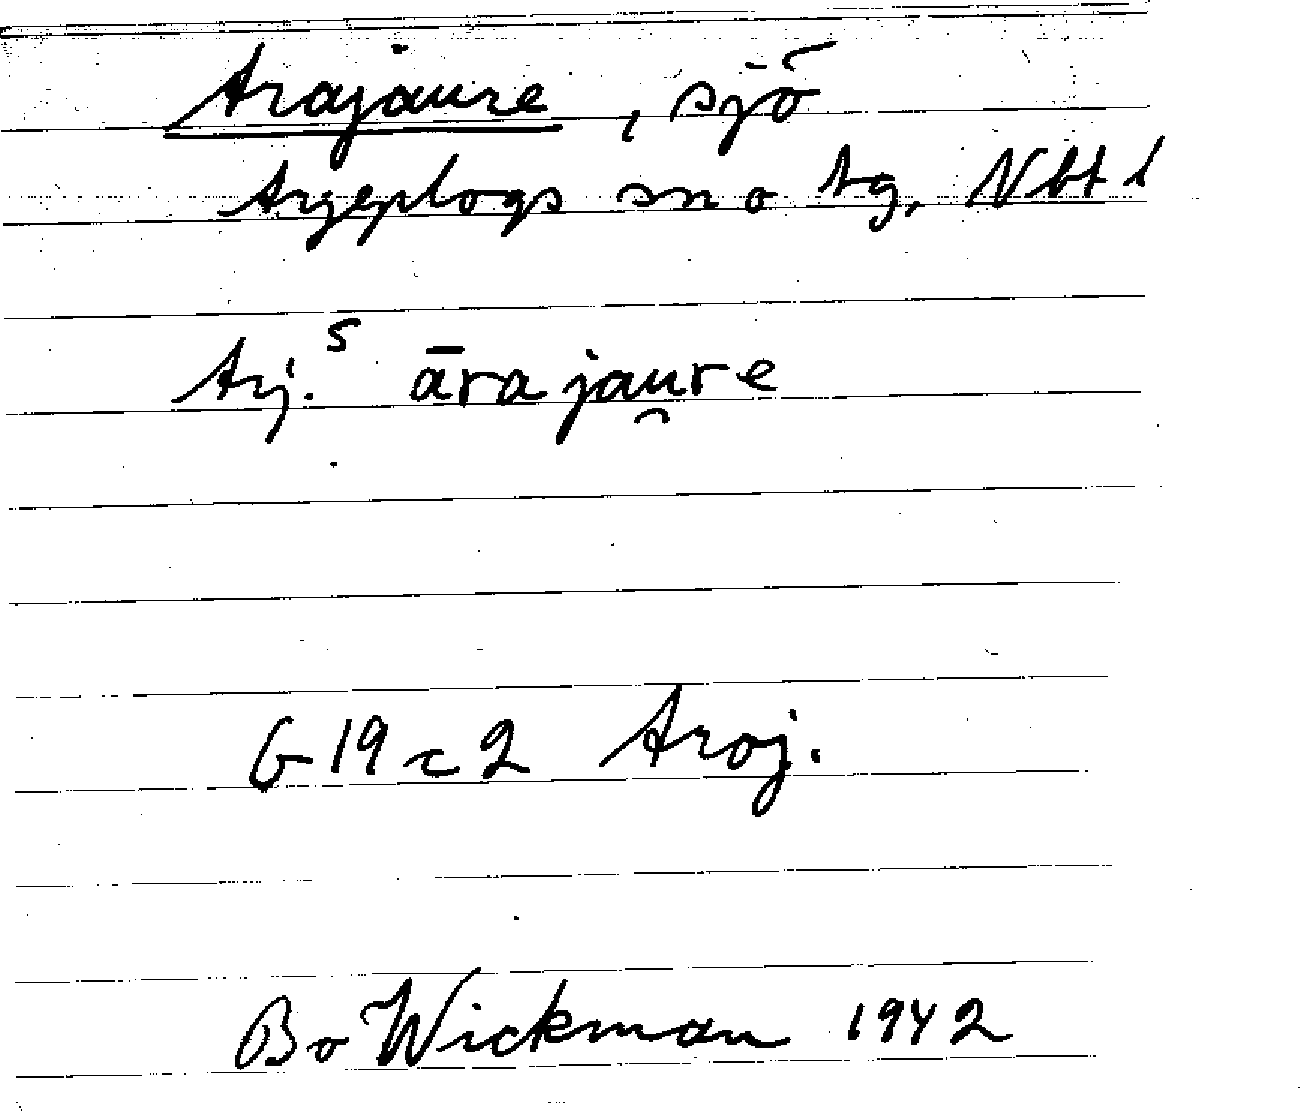 Arajaure, sjö
Arjeplogs sn o tg, Nbt l
Arj.ˢ ārajau̯re
G 19 c 2 Aroj.
Bo Wickman 1942